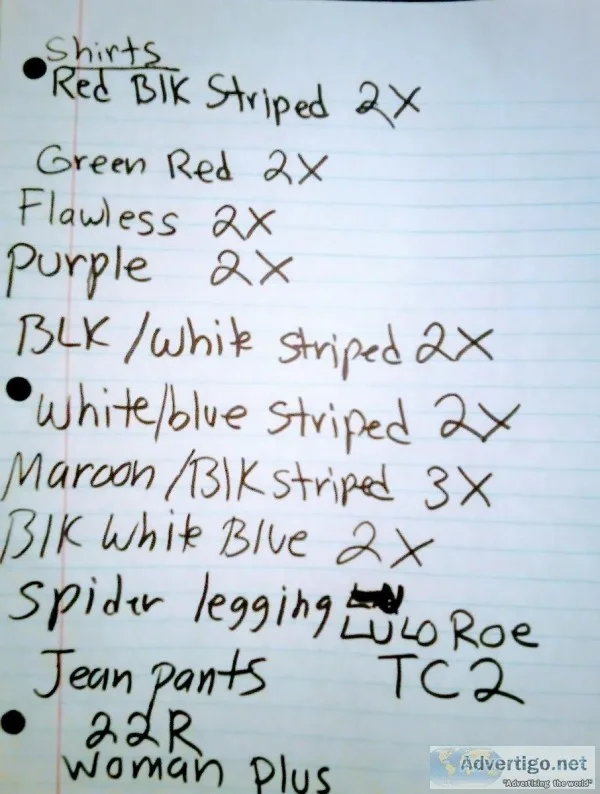 Shirts
Red Blk Striped 2X
Green Red 2X
Flawless 2X
Purple 2X
BLK/White striped 2X
White/blue striped 2X
Maroon/Blk striped 3X
Blk White Blue 2X
Spider legging
LULO Roe
Jean pants TC2
22R
Woman Plus
Advertigo.net
"Advertising the world"